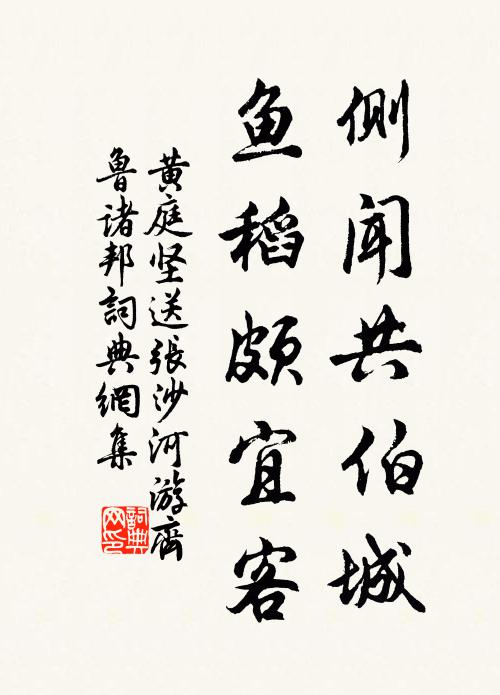 侧闻共伯城
鱼稻颇宜客
黄庭坚送张沙河游齐
鲁诸邦詞典網集
詞典网印